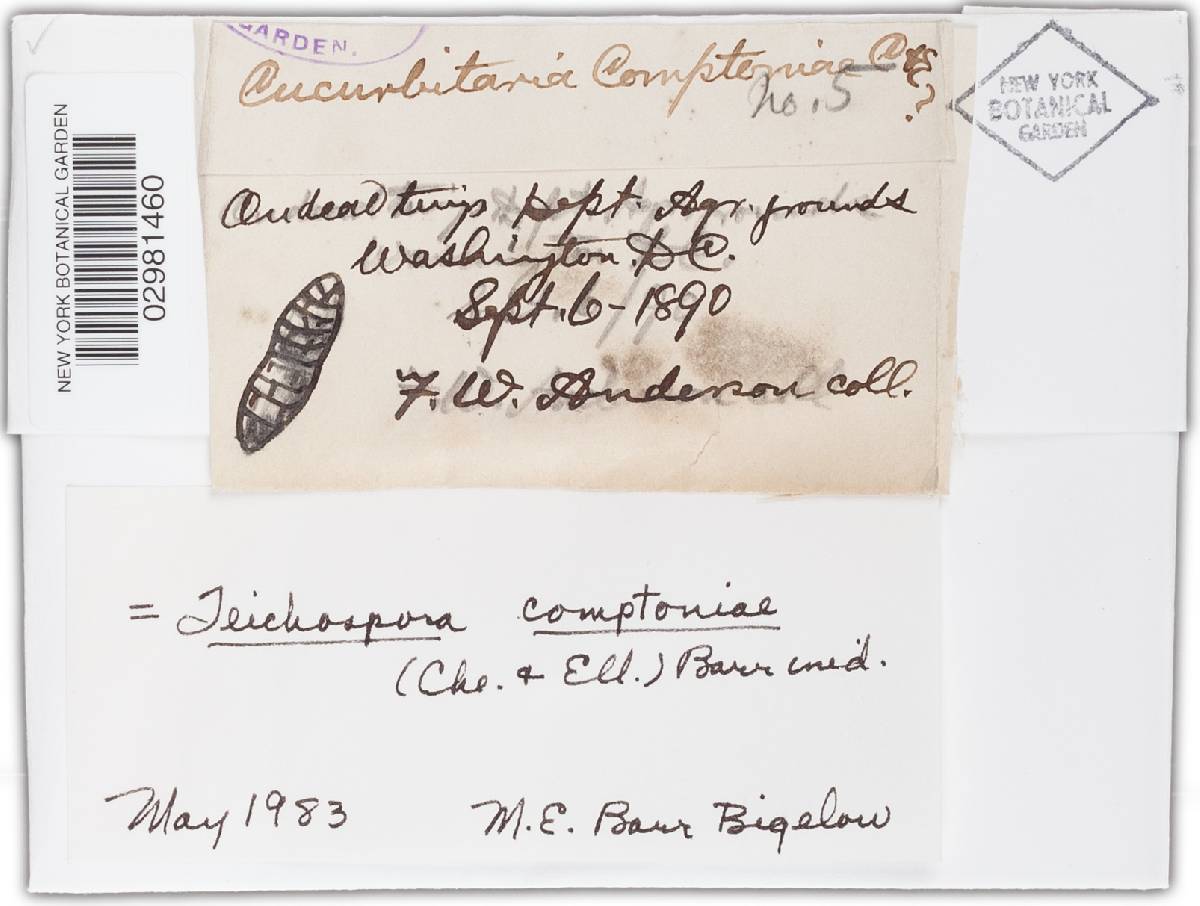 GARDEN.
Cucurbitaria Comptoniae C&E?
No. 5
NEW YORK
BOTANICAL
GARDEN
NEW YORK BOTANICAL GARDEN
02981460
On dead twigs Dept. Agr. grounds
Washington. D.C.
Sept. 6 - 1890
F. W. Anderson coll.
= Teichospora comptoniae
(Cke. & Ell.) Barr ined.
May 1983 M. E. Barr Bigelow